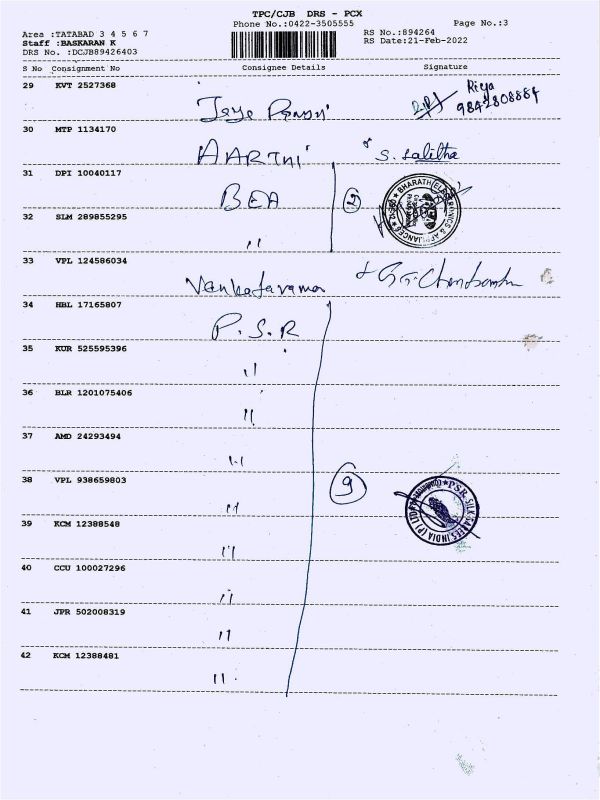 TPC/CJB DRS - PCX
Phone No.:0422-3505555
Page No.:3
Area :TATABAD 3 4 5 6 7
RS No.:894264
Staff :BASKARAN K
RS Date:21-Feb-2022
DRS No. :DCJB89426403
S No Consignment No Consignee Details Signature
29 KVT 2527368
Riya
9842808884
30 MTP 1134170
AARTHI S. Lalitha
31 DPI 10040117
BEA 2
BHARATH ELECTRONICS & APPLIANCES
32 SLM 289855295
"
33 VPL 124586034
Venkataraman
34 HBL 17165807
P.S.R
35 KUR 525595396
"
36 BLR 1201075406
"
37 AMD 24293494
"
38 VPL 938659803
" 9
P.S.R. SILK SAREES INDIA (P) LTD
39 KCM 12388548
"
40 CCU 100027296
"
41 JPR 502008319
"
42 KCM 12388481
"